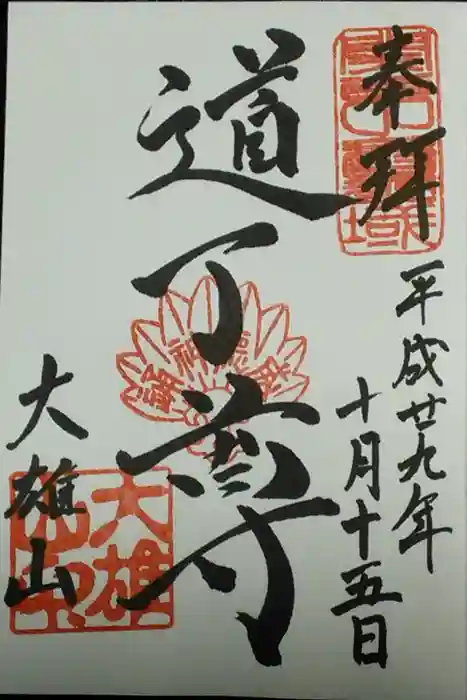 奉拝
平成廿九年
十月十五日
道了尊
大雄山
大雄
山印